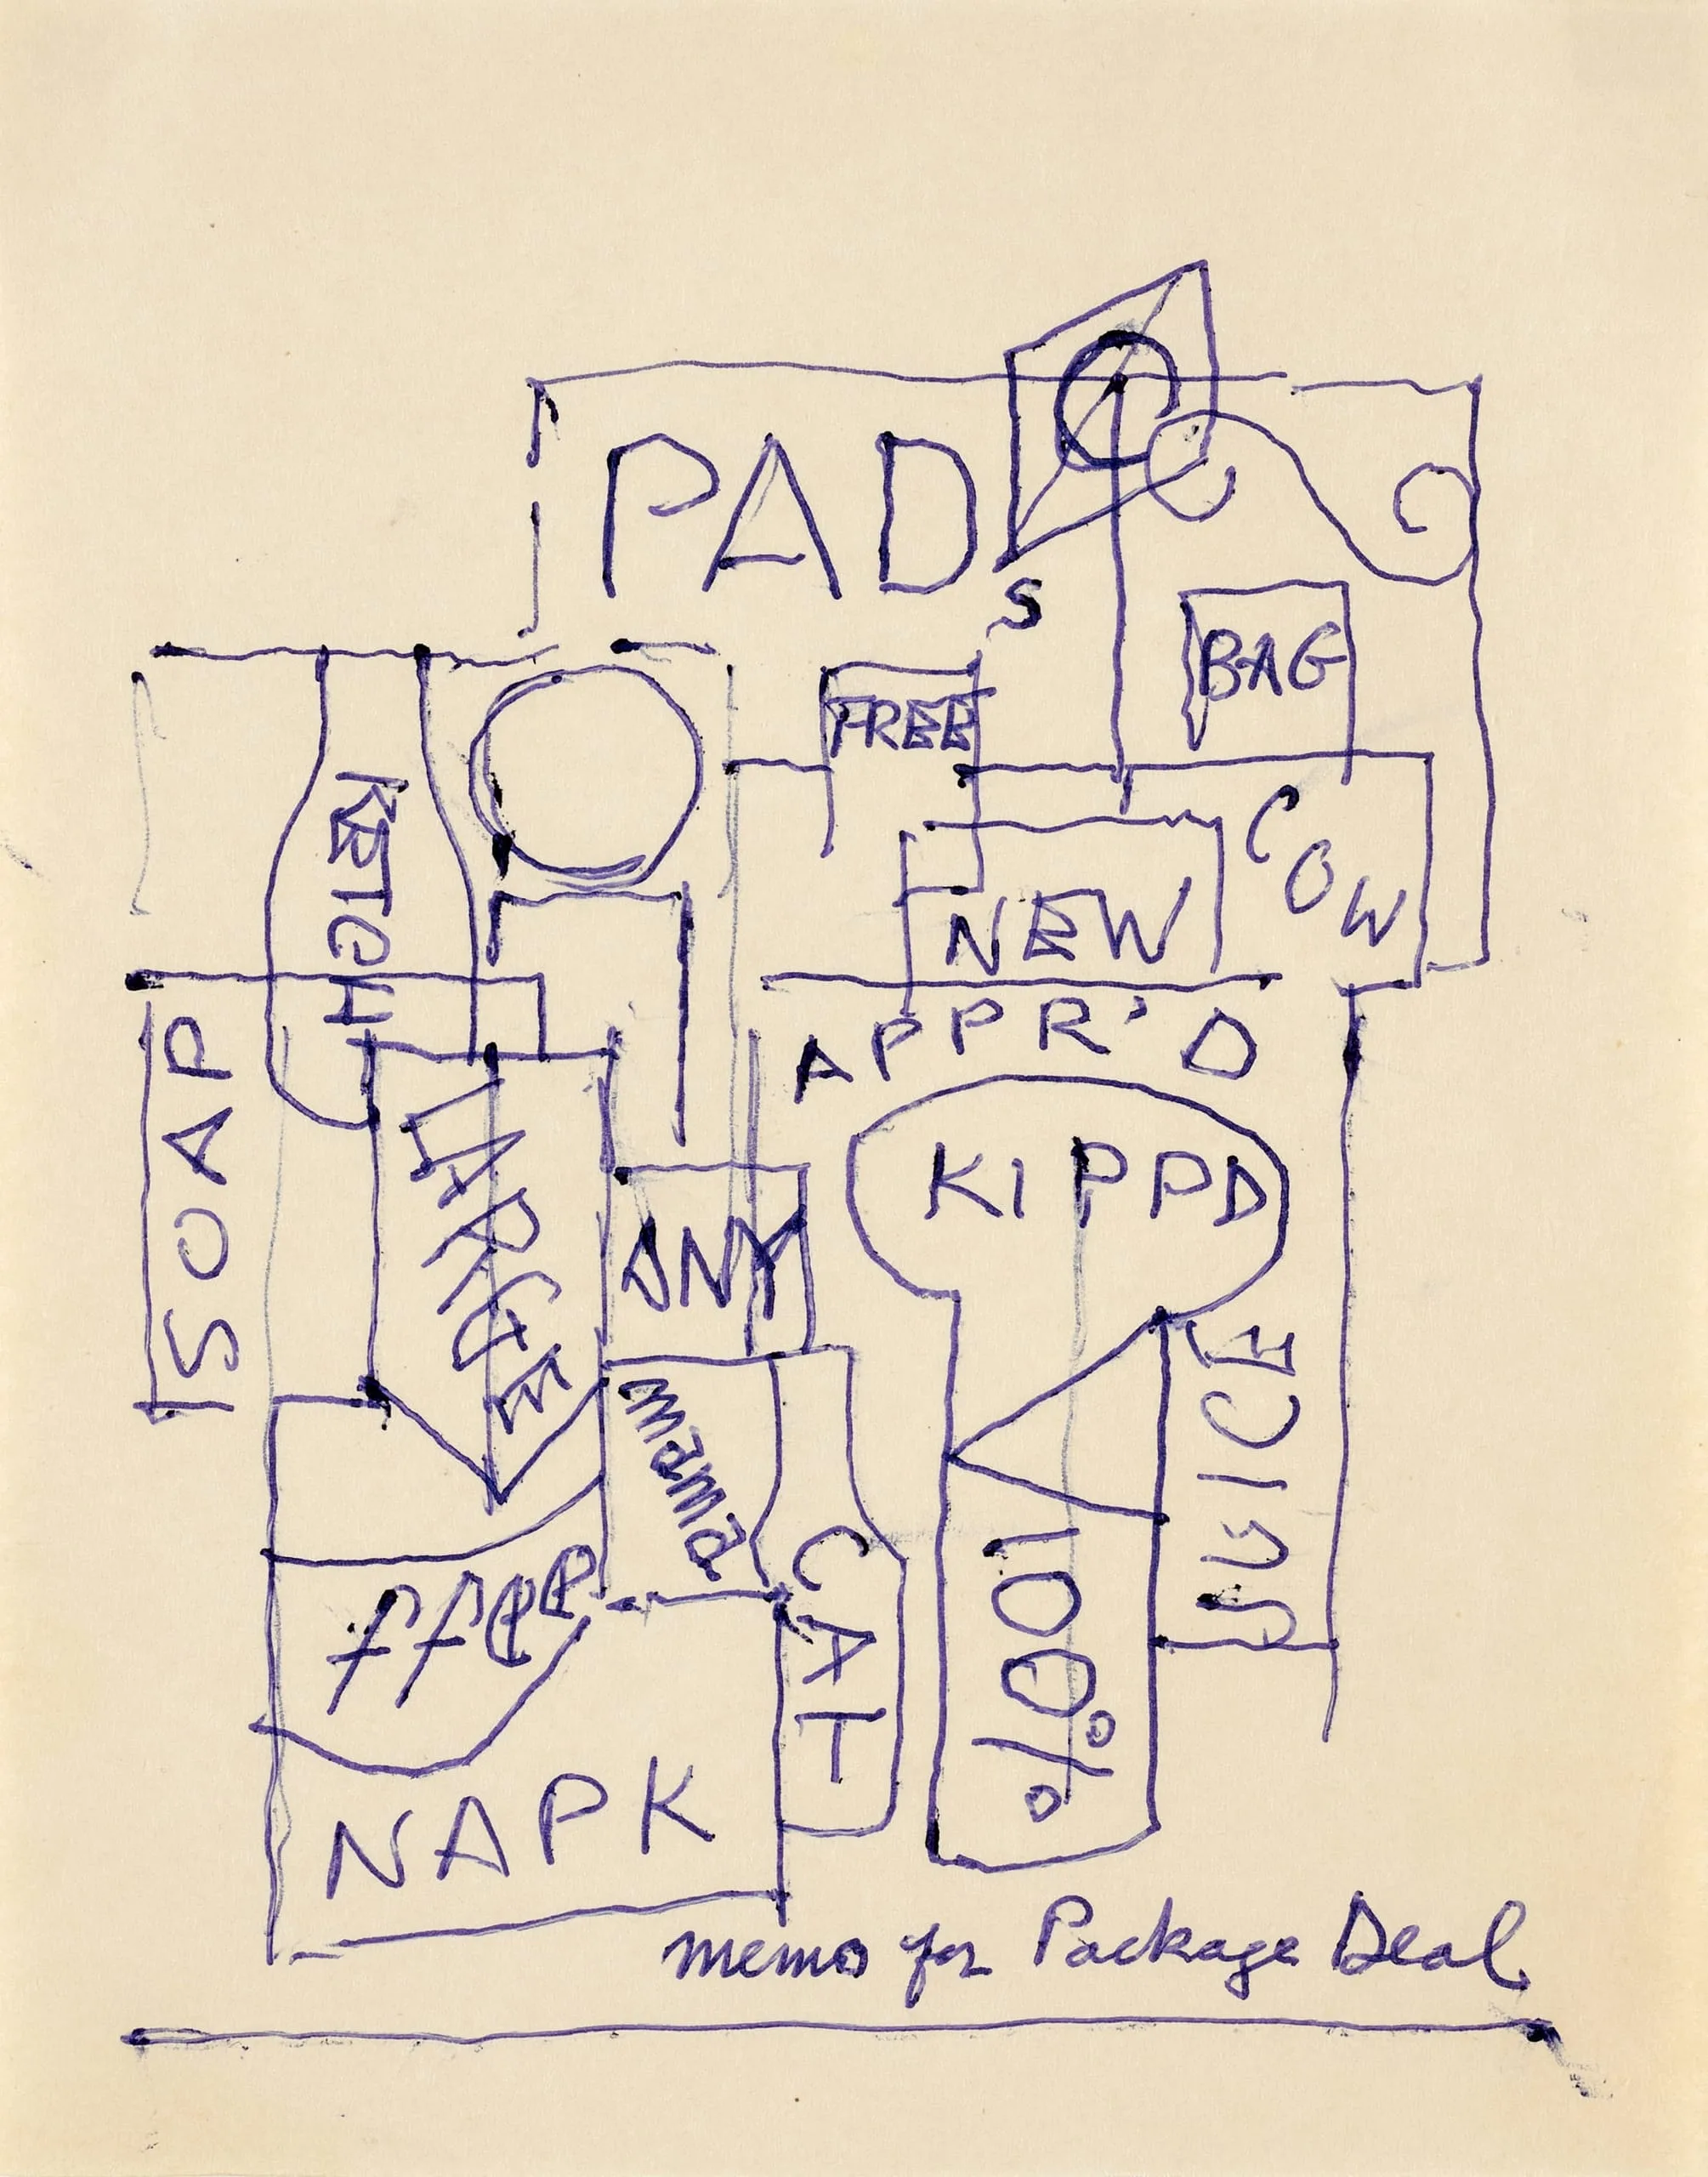 C
PAD
S
BAG
FREE
KETCH
COW
NEW
APPR'D
SOAP
KIPPD
ANY
JUICE
CAT
100%
NAPK
memo for Package Deal